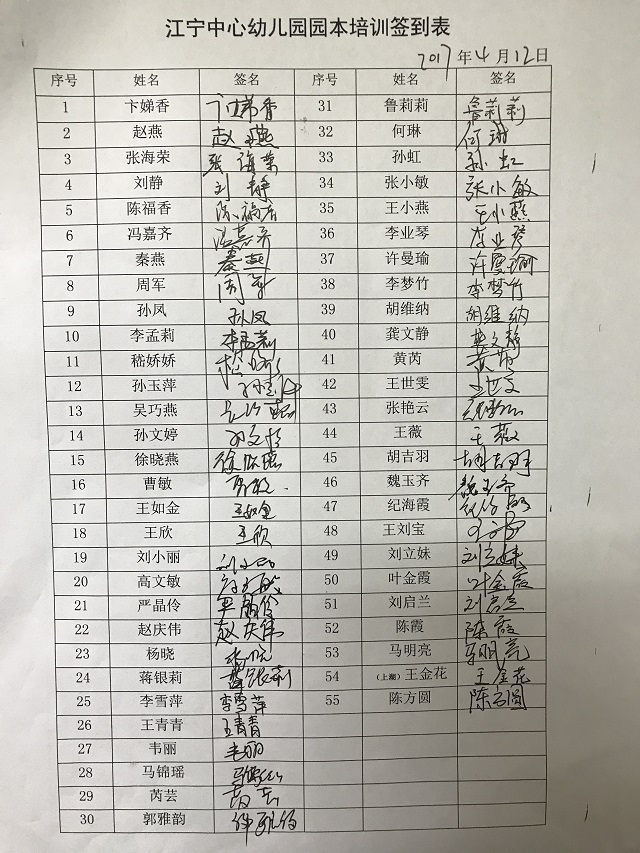 江宁中心幼儿园园本培训签到表
2017年4月12日
序号 姓名 签名 序号 姓名 签名
1 卞娣香 卞娣香 31 鲁莉莉 鲁莉莉
2 赵燕 赵燕 32 何琳 何琳
3 张海荣 张海荣 33 孙虹 孙虹
4 刘静 刘静 34 张小敏 张小敏
5 陈福香 陈福香 35 王小燕 王小燕
6 冯嘉齐 冯嘉齐 36 李业琴 李业琴
7 秦燕 秦燕 37 许曼瑜 许曼瑜
8 周军 周军 38 李梦竹 李梦竹
9 孙凤 孙凤 39 胡维纳 胡维纳
10 李孟莉 李孟莉 40 龚文静 龚文静
11 嵇娇娇 41 黄芮 黄芮
12 孙玉萍 42 王世雯 王世文
13 吴巧燕 43 张艳云
14 孙文婷 孙文婷 44 王薇 王薇
15 徐晓燕 45 胡吉羽 胡吉羽
16 曹敏 46 魏玉齐 魏玉齐
17 王如金 王如金 47 纪海霞
18 王欣 王欣 48 王刘宝
19 刘小丽 49 刘立妹 刘立妹
20 高文敏 50 叶金霞 叶金霞
21 严晶伶 严晶伶 51 刘启兰 刘启兰
22 赵庆伟 赵庆伟 52 陈霞 陈霞
23 杨晓 53 马明亮 马明亮
24 蒋银莉 蒋银莉 54 (上湖)王金花 王金花
25 李雪萍 李雪萍 55 陈方圆 陈方圆
26 王青青 王青青
27 韦丽 韦丽
28 马锦瑶
29 芮芸
30 郭雅韵